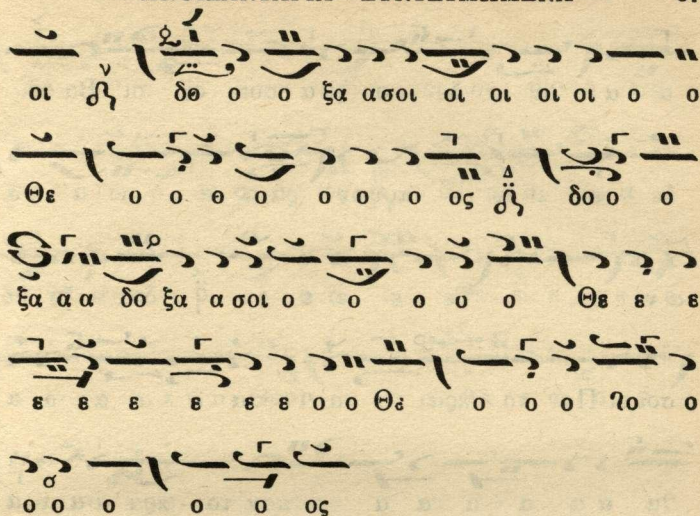 οι δο ο ο ξα ασοι οι οι οι οι ο ο
Θε ο ο ο ο ο ο ο ος δο ο ο
ξα α α δο ξα α σοι ο ο ο ο ο Θε ε ε
ε ε ε ε ε ε ε ο ο Θε ο ο ο ο ο
ο ο ο ο ο ος